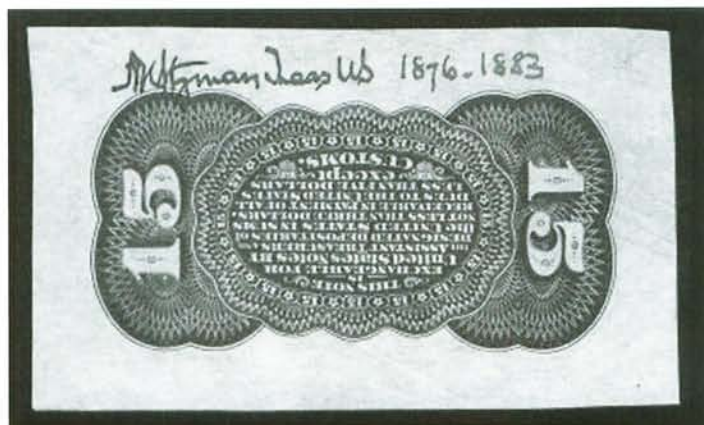 AUWyman Treas US 1876-1883
15
15
THIS NOTE
is
EXCHANGEABLE FOR
United States Notes by
THE ASSISTANT TREASURERS AND
DESIGNATED DEPOSITARIES OF
the UNITED STATES IN SUMS
NOT LESS THAN THREE DOLLARS.
RECEIVABLE IN PAYMENT OF ALL
DUES TO THE UNITED STATES
LESS THAN FIVE DOLLARS
except
CUSTOMS.